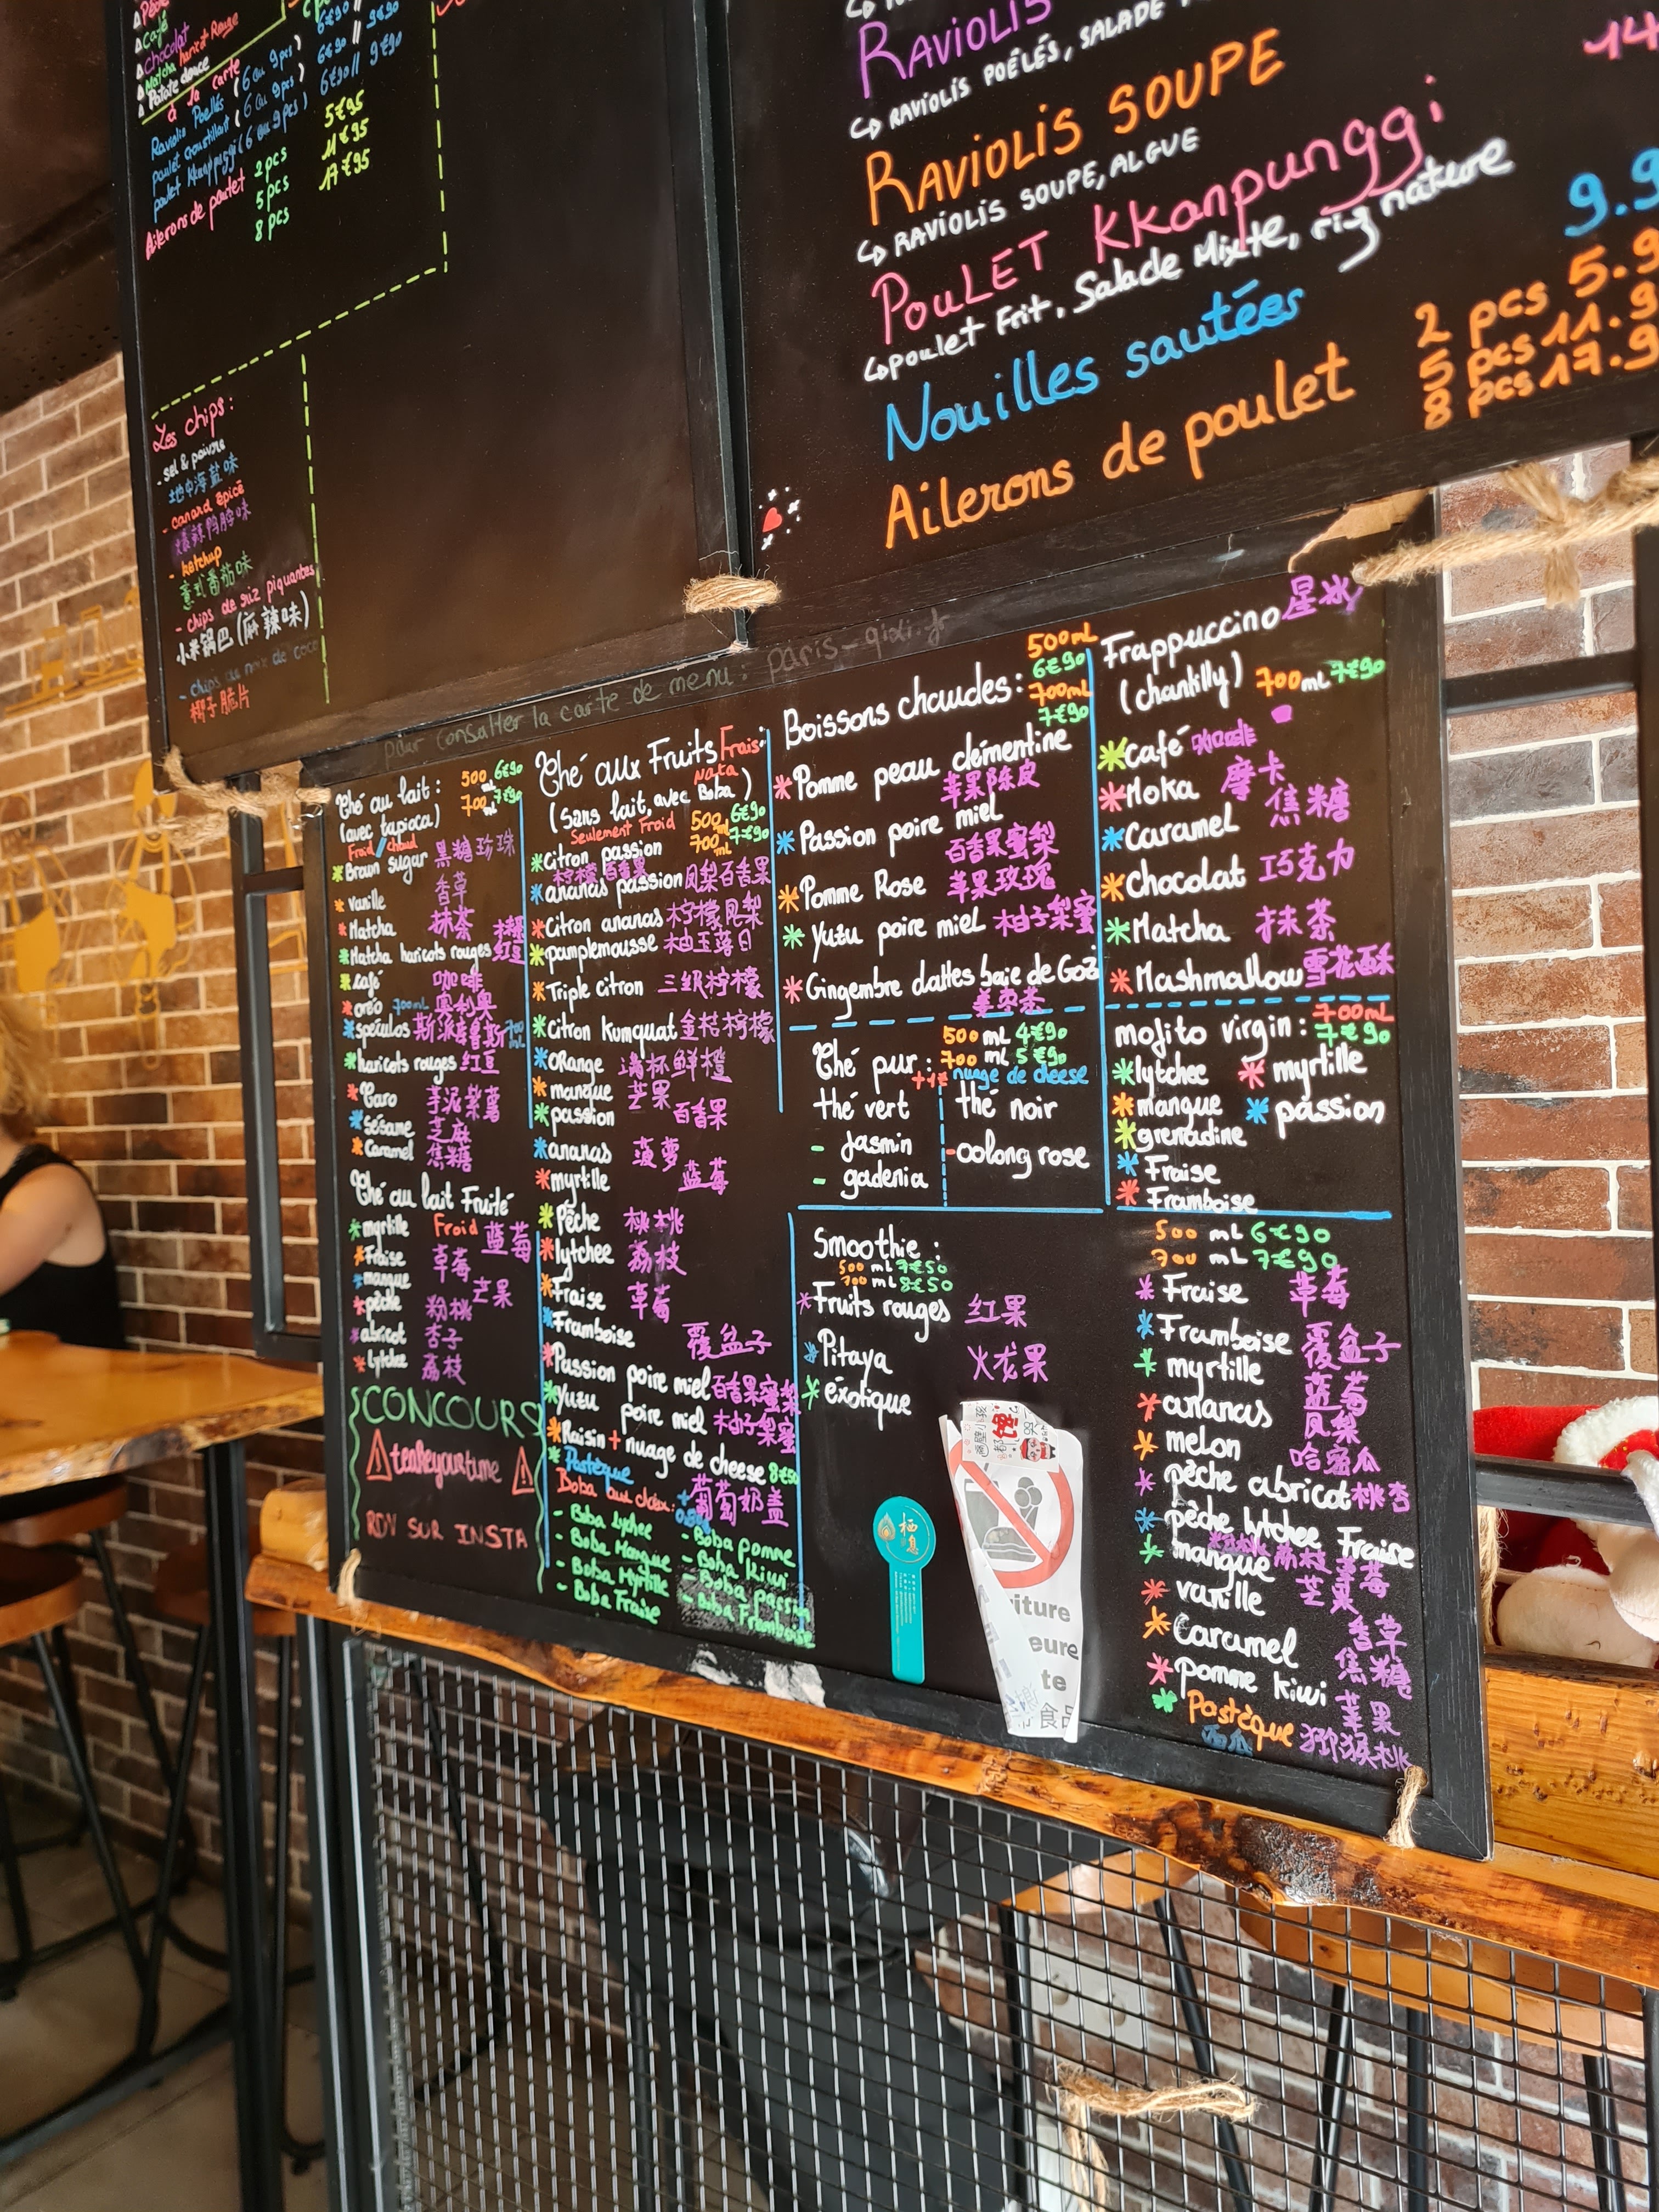 Café
Chocolat
Matcha haricot Rouge
Patate douce
à la carte
Raviolis Poêlés (6 ou 9pcs) 6€90 // 9€90
poulet croustillant (6 ou 9pcs) 6€90 //
poulet Kkanpunggi (6 ou 9pcs) 6€90 // 9€90
Ailerons de poulet 2 pcs 5€95
5 pcs 11€95
8 pcs 17€95
Les chips:
- sel & poivre
地中海盐味
- canard épicé
爆辣鸭脖味
- ketchup
意式番茄味
- chips de riz piquantes
小米锅巴(麻辣味)
- chips au noix de coco
椰子脆片
RAVIOLIS
RAVIOLIS POÊLÉS, SALADE
RAVIOLIS SOUPE
RAVIOLIS SOUPE, ALGUE
POULET KKanpunggi
poulet Frit, Salade Mixte, riz nature
Nouilles sautées 9.9
Ailerons de poulet 2 pcs 5.9
5 pcs 11.9
8 pcs 17.9
pour consulter la carte de menu: paris-qixi.fr
Thé au lait: 500 mL 6€90
(avec tapioca) 700 mL 7€90
Froid / chaud
Brown sugar 黑糖珍珠
vanille 香草
Matcha 抹茶
Matcha haricots rouges 红豆
café 咖啡
oréo 700mL 奥利奥
spéculos 斯派库鲁斯 700 mL
haricots rouges 红豆
Taro 芋泥紫薯
Sésame 芝麻
Caramel 焦糖
Thé au lait Fruité
Froid
myrtille 蓝莓
Fraise 草莓
mangue 芒果
pêche 粉桃
abricot 杏子
lytchee 荔枝
CONCOURS
teakeyourtime
RDV SUR INSTA
Thé aux Fruits Frais:
(sans lait, avec Nata Boba)
Seulement Froid 500 mL 6€90
700 mL 7€90
Citron passion
柠檬百香果
ananas passion 凤梨百香果
Citron ananas 柠檬凤梨
pamplemousse 柚玉落日
Triple citron 三级柠檬
Citron Kumquat 金桔柠檬
ORange 满杯鲜橙
mangue 芒果
passion 百香果
ananas 菠萝
myrtille 蓝莓
Pêche 桃桃
lytchee 荔枝
Fraise 草莓
Framboise 覆盆子
Passion poire miel 百香果蜜梨
Yuzu poire miel 柚子梨蜜
Raisin + nuage de cheese 8€50
Pastèque 葡萄奶盖
Boba aux choix:
- Boba Lychee
- Boba Mangue
- Boba Myrtille
- Boba Fraise
- Boba pomme
- Boba Kiwi
- Boba passion
- Boba Framboise
Boissons chaudes: 500mL 6€90
700mL 7€90
Pomme peau clémentine
苹果陈皮
Passion poire miel
百香果蜜梨
Pomme Rose 苹果玫瑰
Yuzu poire miel 柚子梨蜜
Gingembre dattes baie de Goji
姜枣茶
Thé pur: 500 mL 4€90
700 mL 5€90
+1€ nuage de cheese
thé vert
- Jasmin
- gadenia
thé noir
- oolong rose
Smoothie:
500 mL 7€50
700 mL 8€50
Fruits rouges 红果
Pitaya 火龙果
éxotique
栖息
iture
eure
te
食品
Frappuccino 星冰
(chantilly) 700mL 7€90
Café 咖啡
Moka 摩卡
Caramel 焦糖
Chocolat 巧克力
Matcha 抹茶
Mashmallow 雪花酥
mojito virgin: 700mL
7€90
lytchee
myrtille
mangue
passion
grenadine
Fraise
Framboise
500 mL 6€90
700 mL 7€90
Fraise 草莓
Framboise 覆盆子
myrtille 蓝莓
ananas 凤梨
melon 哈密瓜
pêche abricot 桃杏
pêche lytchee Fraise
mangue 芒果
vanille 香草
Caramel 焦糖
pomme kiwi 苹果
Pastèque 猕猴桃
西瓜